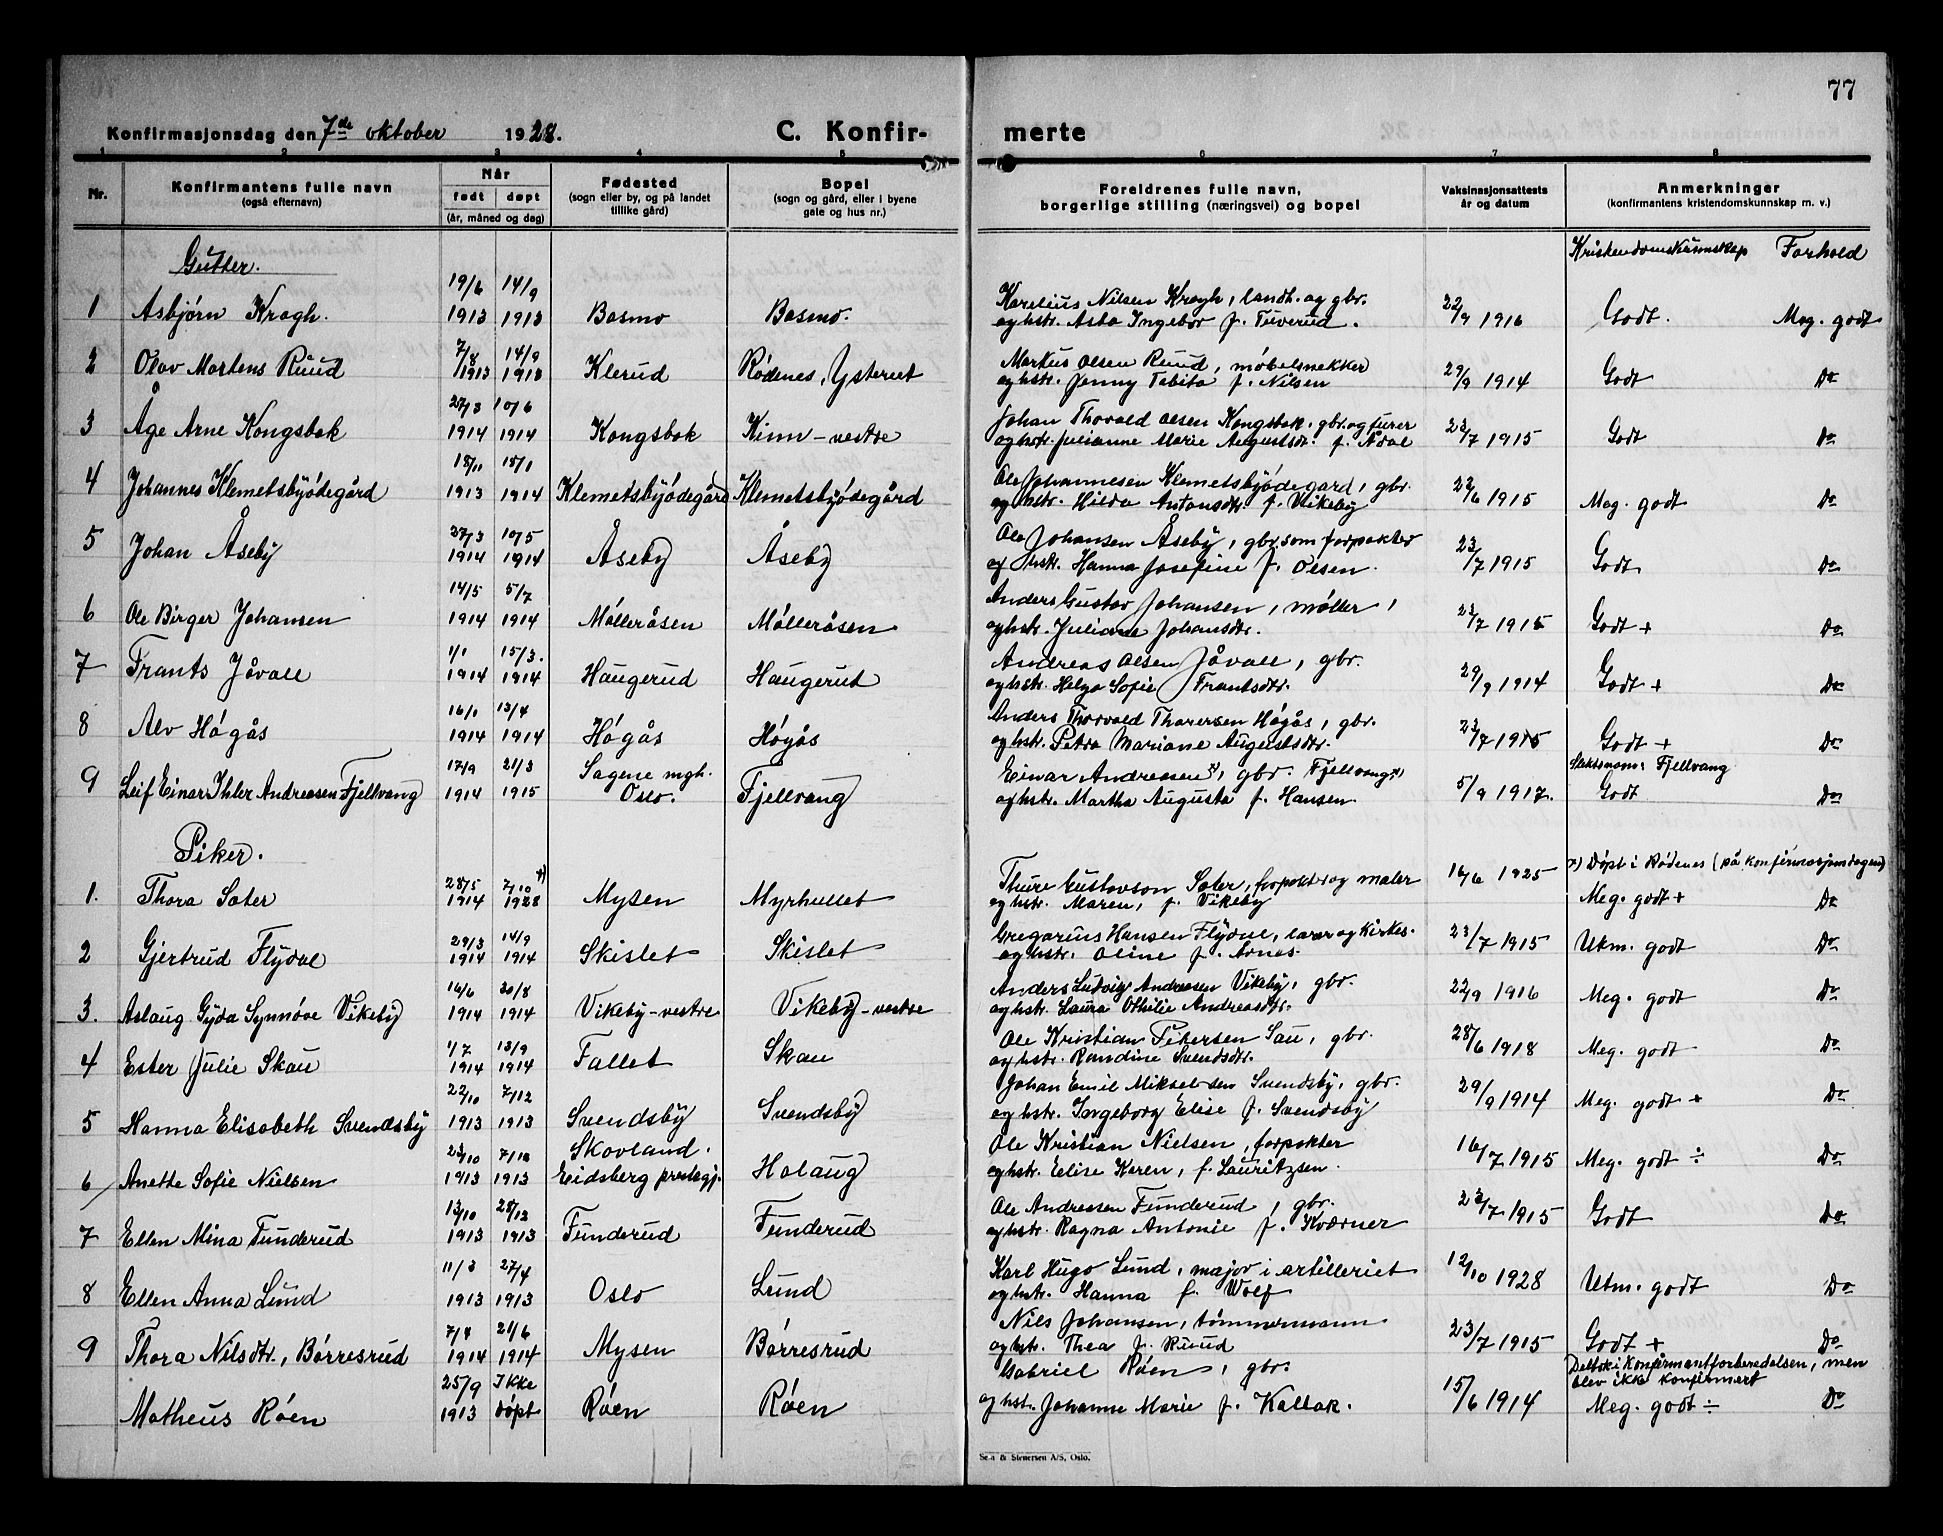 77
Konfirmasjonsdag den 7de oktober 1928. C. Konfir- merte
1 2 3 4 5 6 7 8
Nr. Konfirmantens fulle navn (også efternavn) Når født døpt (år, måned og dag) Fødested (sogn eller by, og på landet tillike gård) Bopel (sogn og gård, eller i byene gate og hus nr.) Foreldrenes fulle navn, borgerlige stilling (næringsvei) og bopel Vaksinasjonsattests år og datum Anmerkninger (konfirmantens kristendomskunnskap m. v.)
Gutter. Kristendomskunnskap Forhold
1 Asbjørn Kragh. 19/6 1913 14/9 1913 Basmo Basmo. Karelius Nilsen Kragh, landh. og gbr. og hstr. Asta Ingebor f. Tuverud. 22/9 1916 Godt. Meg. godt
2 Olav Martens Ruud 7/8 1913 14/9 1913 Klerud Rødenes, Ysterud Markus Olsen Ruud, møbelsnekker og hstr. Jenny Tabita f. Nilsen 29/9 1914 Godt Do
3 Åge Arne Kongsbak 27/3 1914 10/6 1914 Kongsbak Kinn-vestre Johan Thorvald Olsen Kongsbak, gbr. og furer og hstr. Julianne Marie Augustsdtr. f. Ådal 23/7 1915 Godt Do
4 Johannes Klemetsbyødegård 18/11 1913 18/1 1914 Klemetsbyødegård Klemetsbyødegård Ole Johannesen Klemetsbyødegard, gbr. og hstr. Hilda Antonsdtr. f. Vikeby 22/6 1915 Meg. godt Do
5 Johan Åseby 27/3 1914 10/5 1914 Åseby Åseby Ole Johansen Åseby, gbr. som forpakter og hstr. Hanna Josefine f. Olsen. 23/7 1915 Godt Do
6 Ole Birger Johansen 14/5 1914 5/7 1914 Mølleråsen Mølleråsen Anders Gustav Johansen, møller, og hstr. Juliane Johansdtr. 23/7 1915 Godt + Do
7 Frants Jåvall 1/1 1914 15/3. 1914 Haugerud Haugerud Andreas Olsen Jåvall, gbr. og hstr. Helga Sofie Frantsdtr. 29/9 1914 Godt + Do
8 Alv Høgås 16/1 1914 13/4 1914 Høgås Høgås Anders Thorvald Thoresen Høgås, gbr. og hstr. Petra Mariane Augustsdtr. 23/7 1915 Godt + Do
9 Leif Einar Ihler Andreasen Fjellvang 17/9 1914 21/3 1915 Sagene mgh. Oslo. Fjellvang Einar Andreasen x), gbr. Fjellvang x) og hstr. Martha Augusta f. Hansen. 5/9 1917. Slektsnavn: Fjellvang Godt Do
Piker.
1. Thora Sater 28/5 1914 7/10 x) 1928 Mysen Myrhullet Thure Gustavson Sater, forpakter og maler og hstr. Maren, f. Vikeby 16/6 1925 x) Døpt i Rødenes (på konfirmasjonsdagen) Meg. godt + Do
2 Gjertrud Flydal 29/3 1914 14/9 1914 Skislet Skislet Gregarius Hansen Flydal, lærer og kirkes. og hstr. Oline f. Arnes. 23/7 1915 Utm. godt Do
3. Aslaug Gyda Synnøve Vikeby 16/6 1914 30/8 1914 Vikeby-vestre Vikeby-vestre Anders Ludvig Andresen Vikeby, gbr. og hstr. Laura Othilie Andreasdtr. 22/9 1916 Meg. godt Do
4 Ester Julie Skau 1/7 1914 13/9 1914 Fallet Skau Ole Kristian Pedersen Sau, gbr. og hstr. Randine Svendsdtr. 28/6 1918 Meg. godt Do
5 Hanna Elisabeth Svendsby 22/10 1913 7/12 1913 Svendsby Svendsby Johan Emil Mikaelsen Svendsby, gbr. og hstr. Ingeborg Elise f. Svendsby 29/9 1914 Meg. godt + Do
6 Anette Sofie Nielsen 23/10 1913 1913 Skovland. Eidsberg prestegj. Holaug Ole Kristian Nielsen, forpakter og hstr. Elise Karen, f. Lauritzsen. 16/7 1915 Meg. godt ÷ Do
7 Ellen Mina Funderud 13/10 1913 28/12 1913 Funderud Funderud Ole Andresen Funderud, gbr. og hstr. Ragna Antonie f. Kværner 23/7 1915 Godt Do
8 Ellen Anna Lund 11/3 1913 27/4 1913 Oslo Lund Karl Hugo Lund, major i artilleriet og hstr. Hanna f. Wolf 12/10 1928 Utm. godt Do
9 Thora Nilsdtr., Børresrud 7/4 1914 21/6 1914 Mysen Børresrud Nils Johansen, tømmermann og hstr. Thea f. Ruud 23/7 1915 Godt + Do
Matheus Røen 25/9 1913 Ikke døpt Røen Røen Gabriel Røen, gbr. og hst. Johanne Marie f. Kallak. 15/6 1914 Deltok i konfirmantforberedelsen, men blev ikke konfirmert Meg. godt ÷ Do
& Stenersen A/S, Oslo.